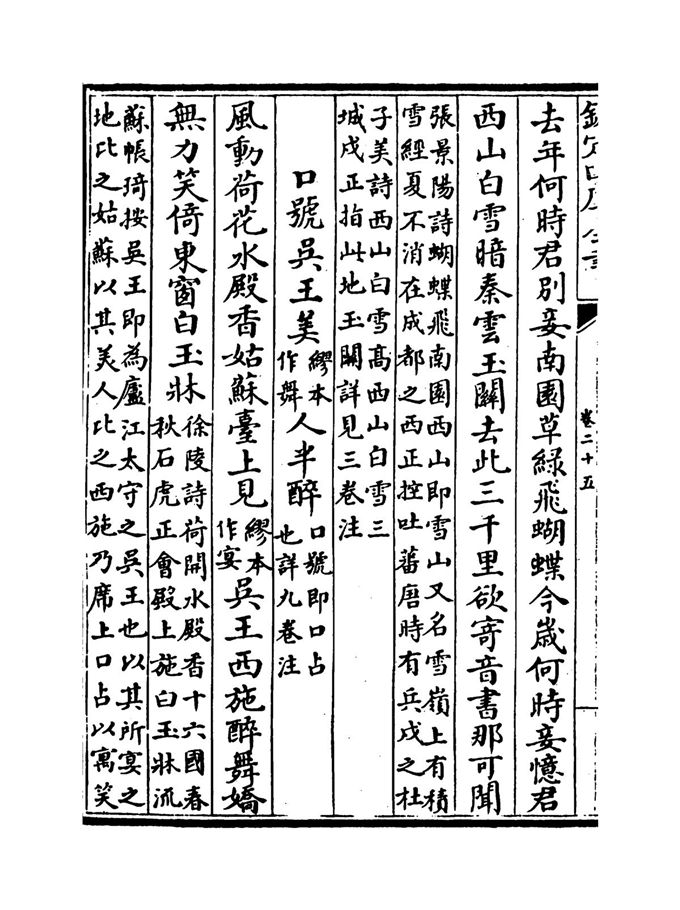 卷二十五
去年何時君別妾南園草綠飛蝴蝶今歲何時妾憶君
西山白雪暗秦雲玉關去此三千里欲寄音書那可聞
張景陽詩蝴蝶飛南園西山即雪山又名雪嶺上有積
雪經夏不消在成都之西正控吐蕃唐時有兵戍之杜
子美詩西山白雪高西山白雪三
城戍正指此地玉關詳見三卷注
口號吳王美繆本作舞人半醉口號即口占也詳九卷注
風動荷花水殿香姑蘇臺上見繆本作宴吳王西施醉舞嬌
無力笑倚東窗白玉牀徐陵詩荷開水殿香十六國春秋石虎正會殿上施白玉牀流
蘇帳琦按吳王即為廬江太守之吳王也以其所宴之
地比之姑蘇以其美人比之西施乃席上口占以寓笑